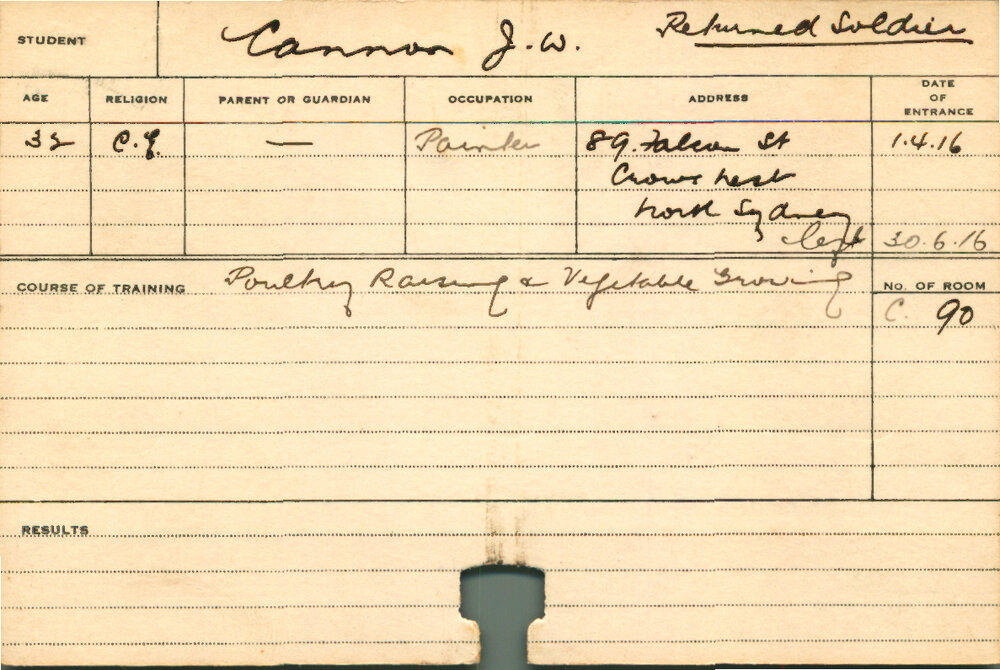 STUDENT Cannon J. W. Returned Soldier
AGE RELIGION PARENT OR GUARDIAN OCCUPATION ADDRESS DATE OF ENTRANCE
32 C.E. — Painter 89. Falcon St 1.4.16
Crows nest
North Sydney
left 30.6.16
COURSE OF TRAINING Poultry Raising & Vegetable Growing No. OF ROOM
C. 90
RESULTS